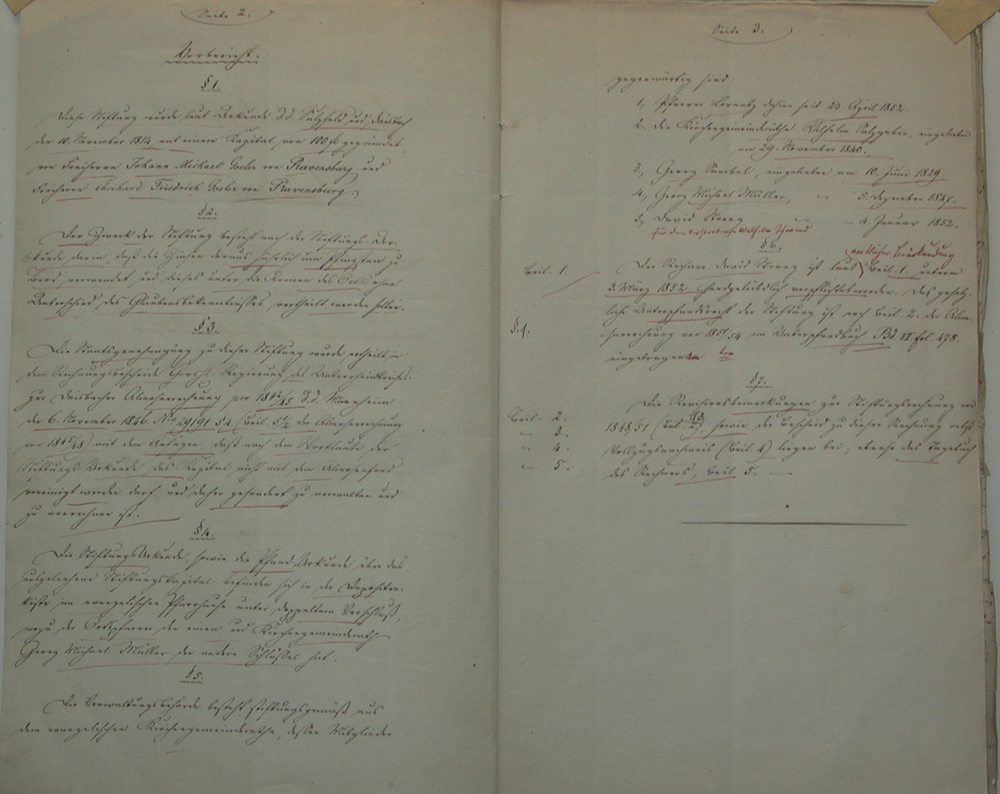 Seite 2.
Vorbericht.
§ 1.
Diese Stiftung wurde laut Urkunde d.d. Sulzfeld und Daisbach
den 10. November 1814 mit einem Kapital von 100 fl gegründet
von Freiherrn Johann Michael Goeler von Ravensburg und
Freiherrn Eberhard Friedrich Goeler von Ravensburg.
§ 2.
Der Zweck der Stiftung besteht nach der Stiftungs-Ur-
kunde darin, daß die Zinsen daraus jährlich um Pfingsten zu
Brod verwendet und dieses unter die Armen des Orts ohne
Unterschied des Glaubensbekenntnisses vertheilt werden sollen.
§ 3.
Die Staatsgenehmigung zu dieser Stiftung wurde ertheilt in
dem Rechnungsbescheide Grossh. Regierung des Unterrheinkreises
zur Daisbacher Almosenrechnung pro d.d. Mannheim
den 6. November 1846. No. 29191 § 4 (Beil. der Almosenrechnung
mit dem Anfügen, daß nach dem Wortlaute der
Stiftungs-Urkunde das Kapital nicht mit dem Almosenfond
vereinigt werden darf, und daher gesondert zu verwalten und
zu verrechnen ist.
§ 4.
Die Stiftungs-Urkunde, sowie die Pfand-Urkunde über das
ausgeliehene Stiftungskapital befinden sich in der Depositen-
kiste im evangelischen Pfarrhause unter doppeltem Verschluß,
wozu der Ortspfarrer den einen und Kirchengemeinderath
Georg Michael Müller den andern Schlüssel hat.
§ 5.
Die Verwaltungsbehörde besteht stiftungsgemäß aus
dem evangelischen Kirchengemeinderathe, dessen Mitglieder
Seite 3.
gegenwärtig sind:
1, Pfarrer dahier seit 23. April 1852.
2. Die Kirchengemeinderäthe Wilhelm Salzgeber, eingetreten
am 29. November 1840.
3, Georg eingetreten am 10. Juni 1829
4, Georg Michael Müller, " 5. Dezember 1847.
5, David Streng " 4. Januar 1852.
für den verstorbenen Wilhelm Schmid
§ 6.
amtlicher Beurkundung
Beil. 1. Der Rechner David Streng ist laut Beil. 1. unterm
3. März 1852 handgelübdlich verpflichtet worden. Das gesetz-
liche Unterpfandsrecht der Stiftung ist nach Beil. 2. der Almo-
senrechnung von 1851/54 im Unterpfandbuch Bd VI Fol. 478.
eingetragen
§ 7.
Die Revisionsbemerkungen zur Stiftungsrechnung von
Beil. 2. (Beil. sowie der Bescheid zu dieser Rechnung nebst
" 3.
" 4. Vollzugsnachweis (Beil. 4) liegen bei, ebenso das Tagebuch
" 5. des Rechners, Beil. 5.